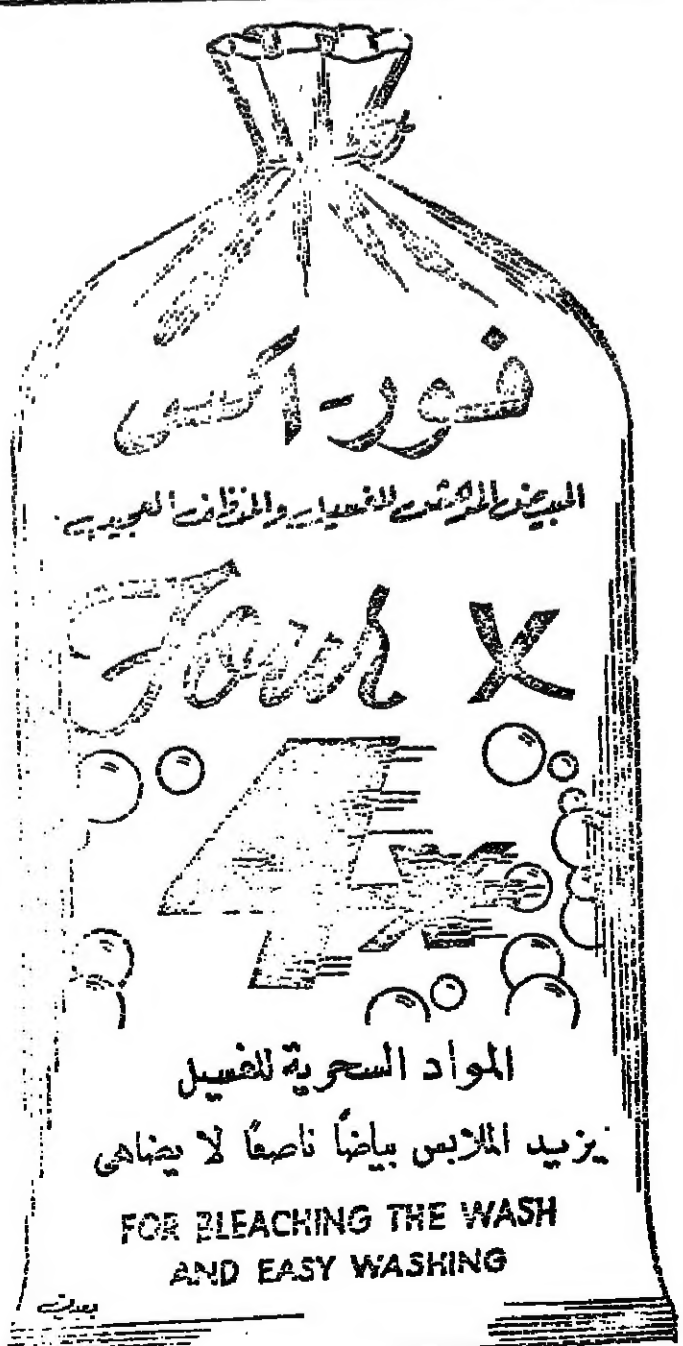 فور-اكس
المبيض المركز للغسيل والمنظف العجيب
Four X
4x
المواد السحرية للغسيل
يزيد الملابس بياضًا ناصعًا لا يضاهى
FOR BLEACHING THE WASH
AND EASY WASHING